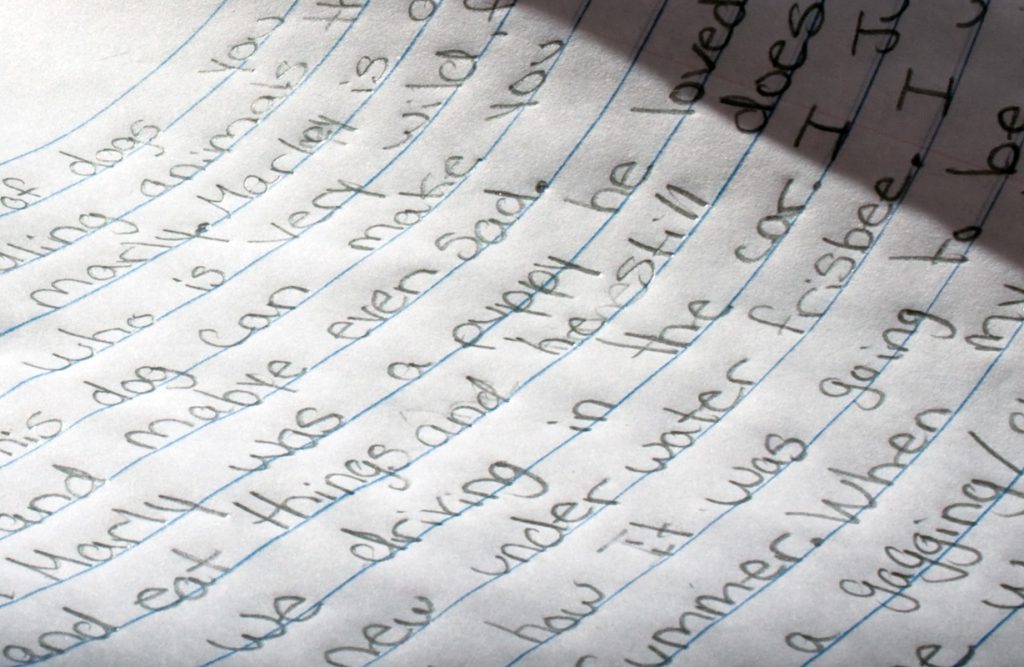 of dogs you
animals
marly. Marley is
who is very wild
dog can make you
and mabye even sad.
Marly was a puppy he loved
and eat things and he still does
We driving in the car. I
new under water frisbee. I
how It was going to be
ummer. When my
a gagging/